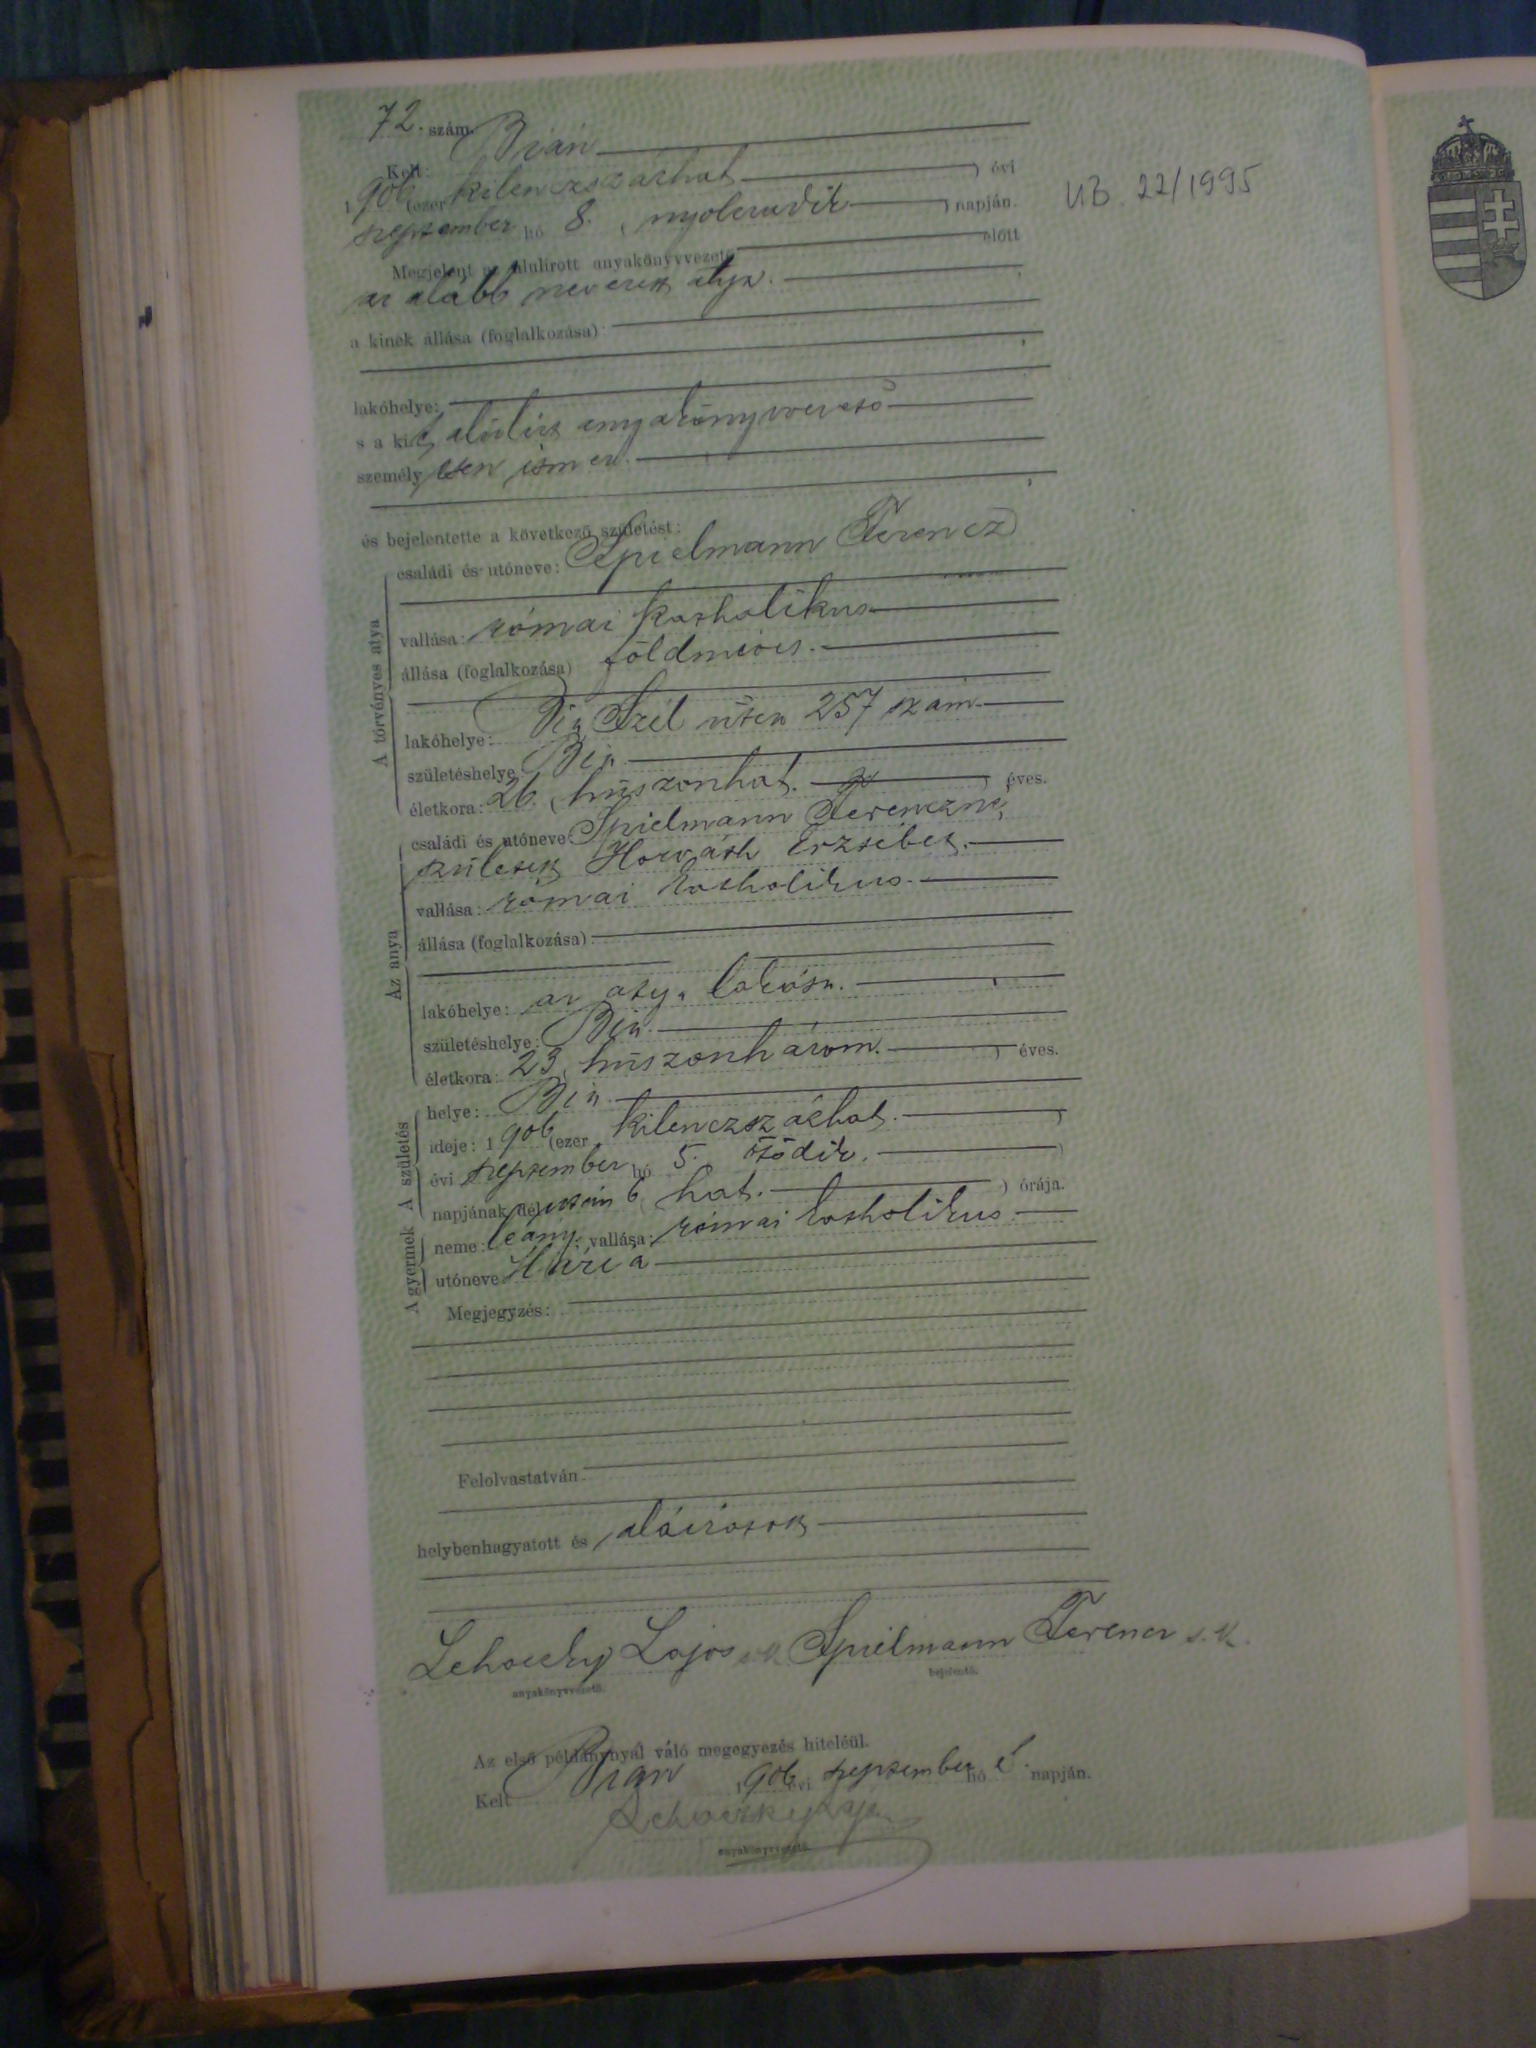 72. szám.
Kelt: Bián
1906 (ezer kilenczszázhat) évi
szeptember hó 8. (nyolczadik) napján.
UB. 22/1995
Megjelent az alulirott anyakönyvvezető előtt
az alább nevezett atya.
a kinek állása (foglalkozása):
lakóhelye:
s a kit alúlirt anyakönyvvezető
személyesen ismer.
és bejelentette a következő születést:
A törvényes atya
családi és utóneve: Spielmann Ferencz
vallása: római katholikus
állása (foglalkozása) földmives.
lakóhelye: Bia, Szél utcza 257 szám
születéshelye: Bia
életkora: 26. (huszonhat.) éves.
Az anya
családi és utóneve: Spielmann Ferenczné
született Horváth Erzsébet.
vallása: római katholikus.
állása (foglalkozása):
lakóhelye: az atya lakása.
születéshelye: Bia.
életkora: 23 (huszonhárom.) éves.
A születés
helye: Bia.
ideje: 1906 (ezer kilenczszázhat.)
évi szeptember hó 5. ötödik.
napjának délután 6 (hat.) órája.
A gyermek
neme: leány. vallása: római katholikus
utóneve: Mária
Megjegyzés:
Felolvastatván
helybenhagyatott és aláiratott
Lehoczky Lajos s.k. Spielmann Ferencz s.k.
anyakönyvvezető. bejelentő.
Az első példánynyal való megegyezés hiteléül.
Kelt Bián 1906 évi szeptember hó 8. napján.
Lehoczky Lajos
anyakönyvvezető.